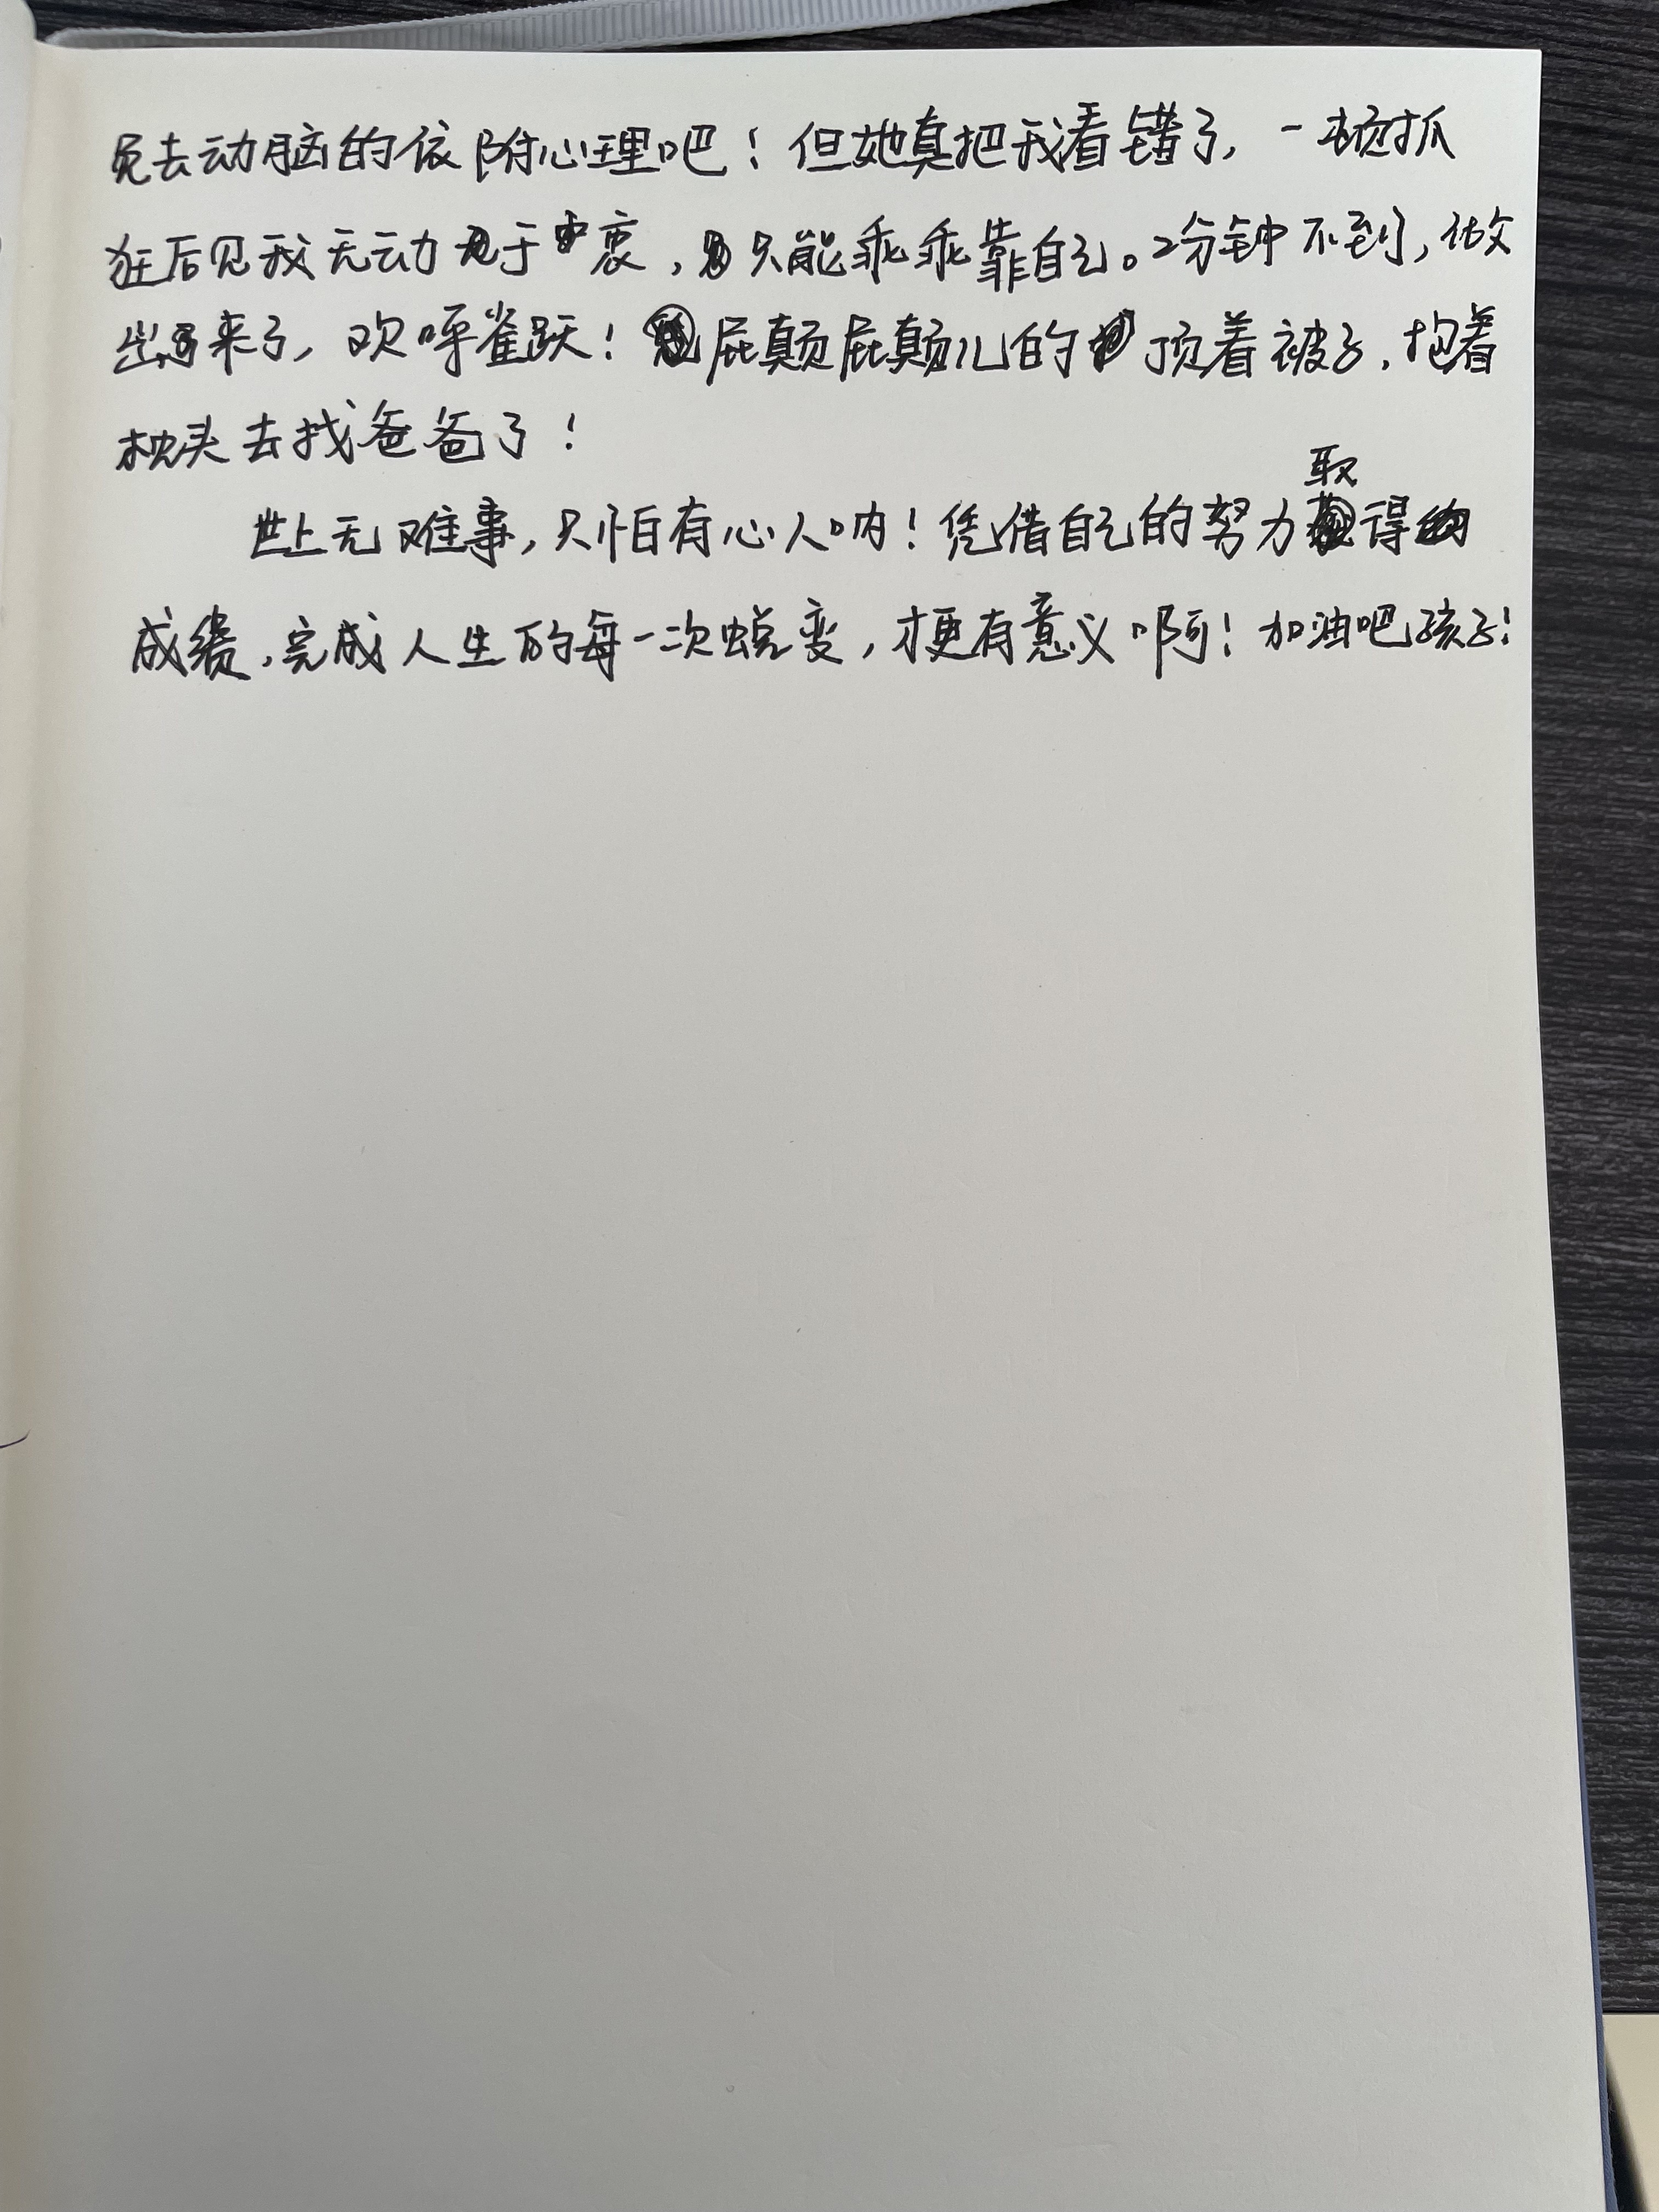 见去动脑的依附心理吧！但她真把我看错了，一顿抓
狂后见我无动于衷，只能乖乖靠自己。2分钟不到，做
出来了，欢呼雀跃！屁颠屁颠儿的顶着被子，抱着
枕头去找爸爸了！
世上无难事，只怕有心人呐！凭借自己的努力取得
成绩，完成人生的每一次蜕变，才更有意义啊！加油吧孩子！